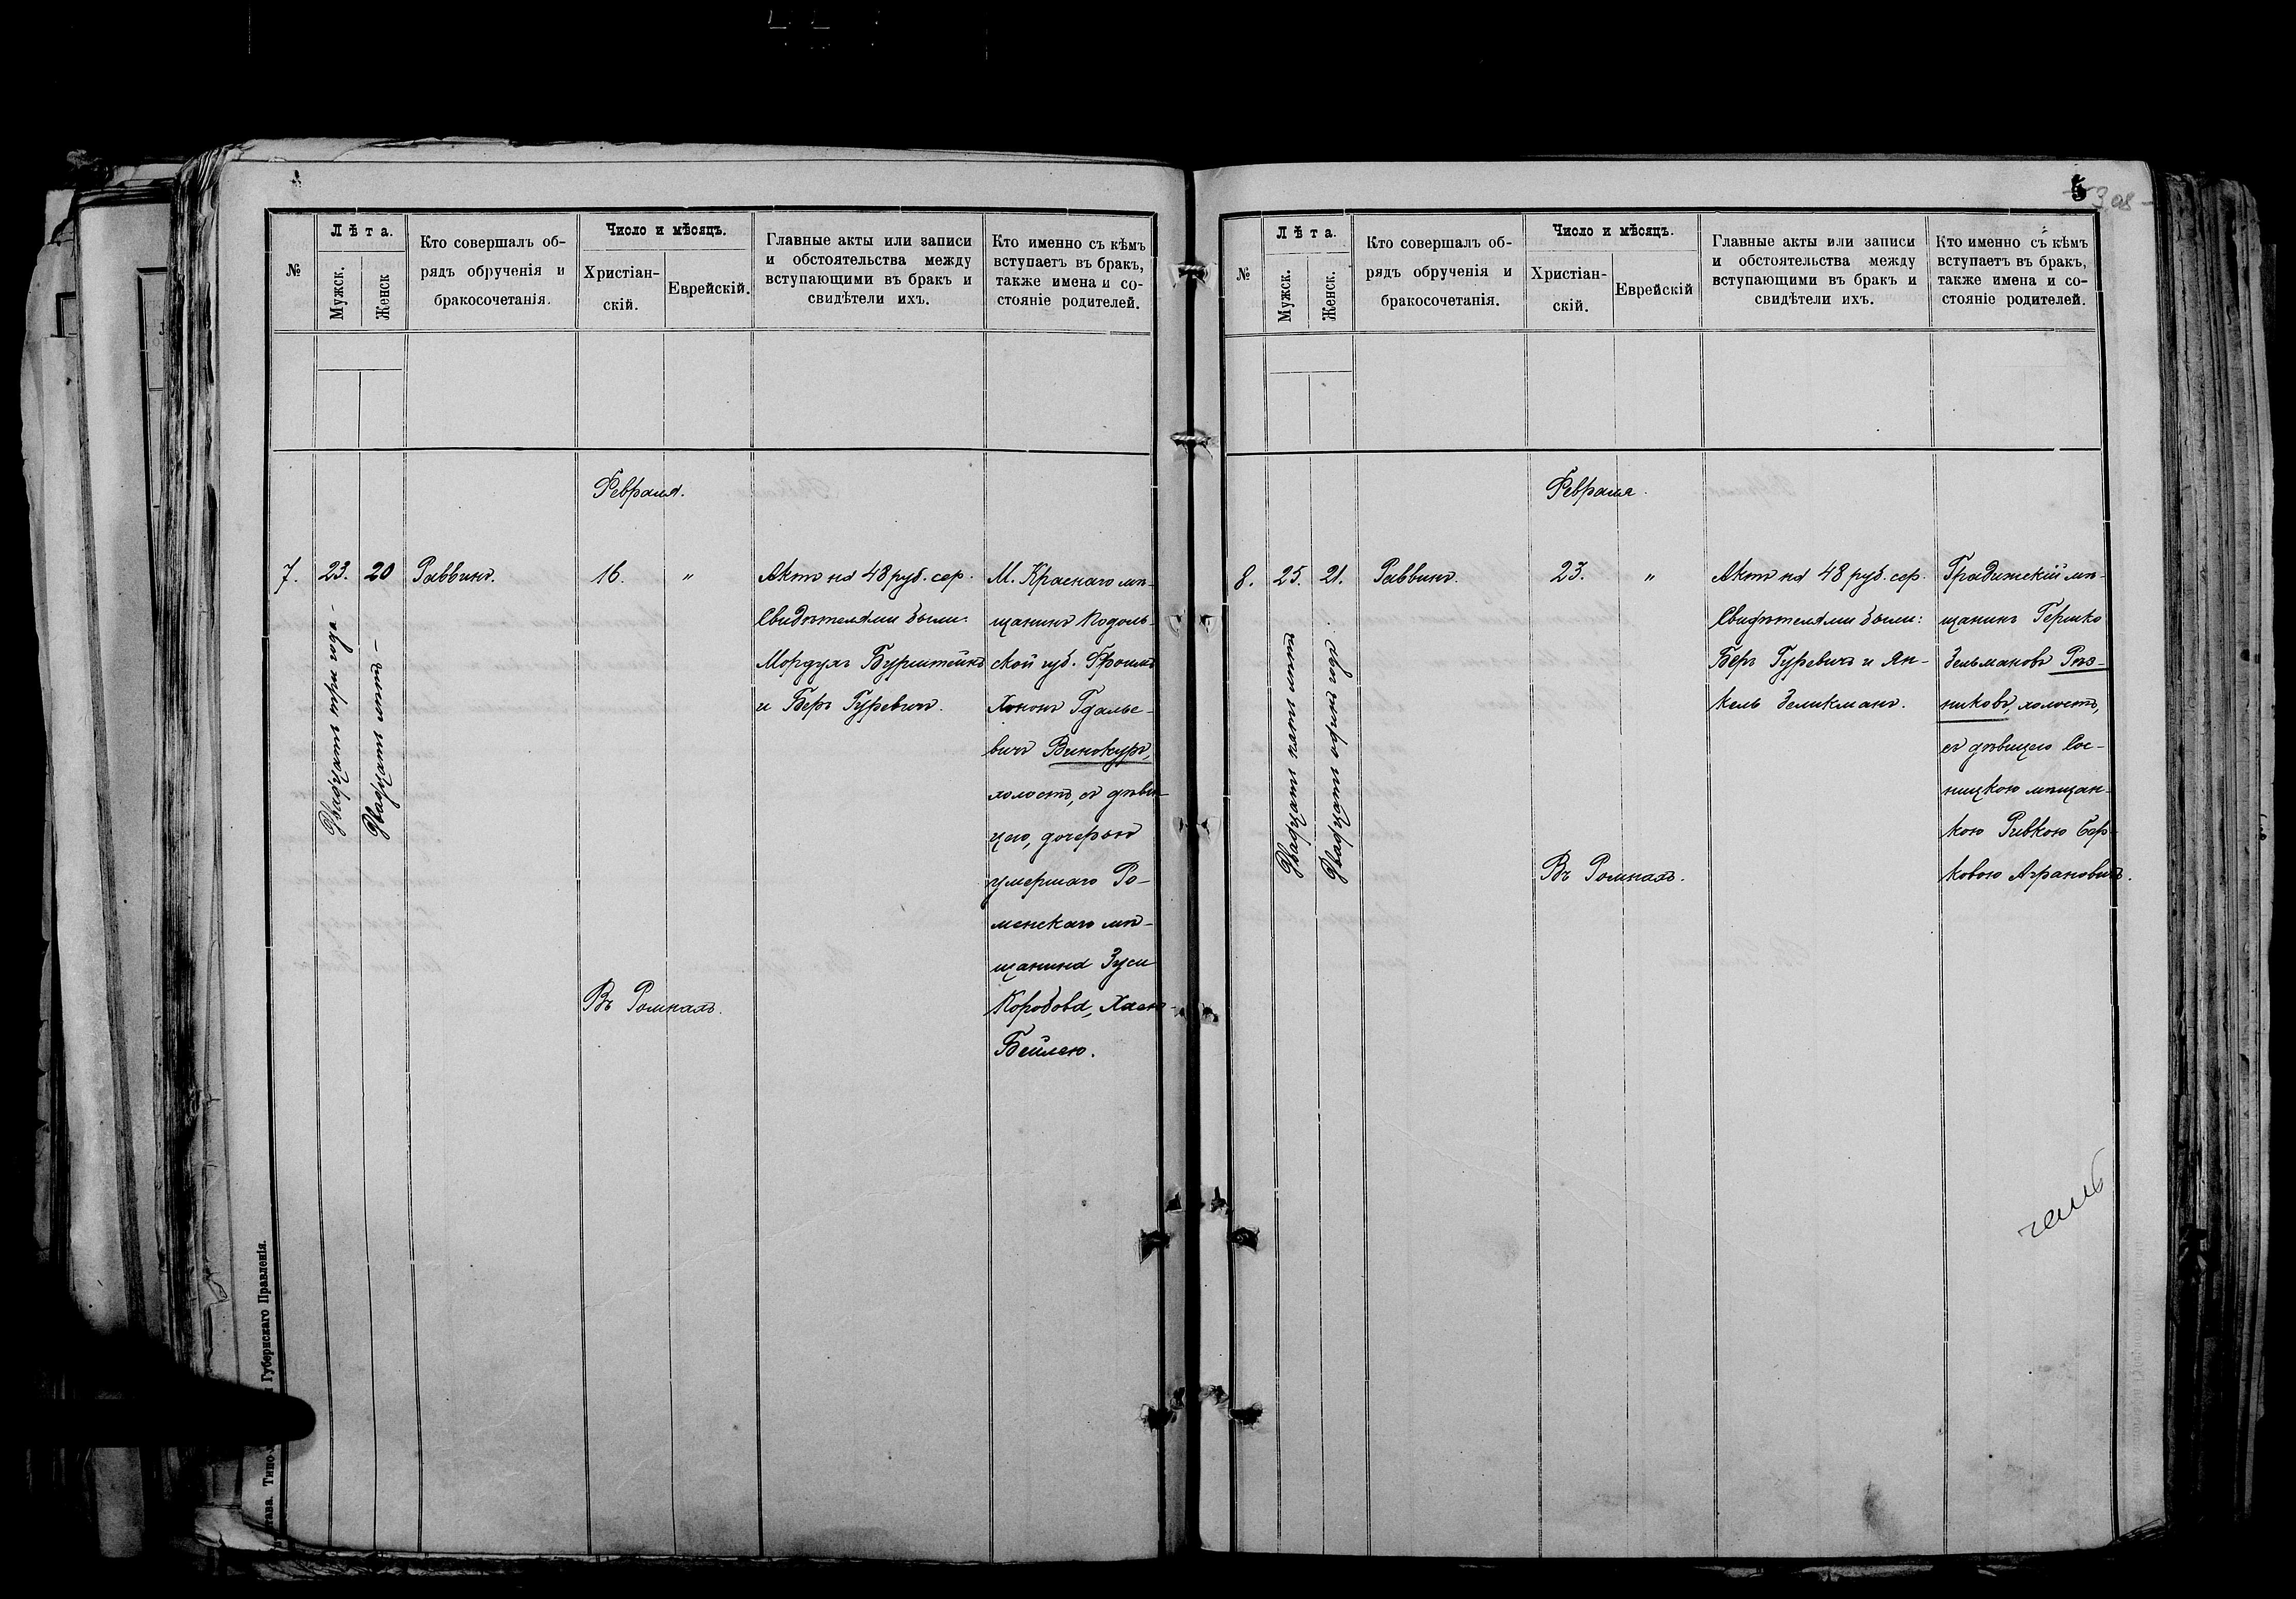 №
Лѣта.
Мужск.
Женск
Кто совершалъ об-
рядъ обрученія и
бракосочетанія.
Число и мѣсяцъ.
Христіан-
скій.
Еврейскій.
Главные акты или записи
и обстоятельства между
вступающими въ бракъ и
свидѣтели ихъ.
Кто именно съ кѣмъ
вступаетъ въ бракъ,
также имена и со-
стояніе родителей.
Февраля.
7.
23.
Двадцать три года -
20
Двадцать лѣтъ -
Раввинъ.
16.
"
Въ Ромнахъ.
Актъ на 48 руб. сер.
Свидѣтелями были:
Мордухъ Бурштейнъ
и Беръ Гуревичъ.
М. Краснаго мѣ-
щанинъ Подоль-
ской губ. Фроимъ
Хононъ Гдалье-
вичъ Винокуръ,
холостъ, съ дѣви-
цею, дочерью
умершаго Ро-
менскаго мѣ-
щанина Зуси
Коробова, Хаею
Бейлею.
Губернскаго Правленія.
5
308
№
Лѣта.
Мужск.
Женск.
Кто совершалъ об-
рядъ обрученія и
бракосочетанія.
Число и мѣсяцъ.
Христіан-
скій.
Еврейскій
Главные акты или записи
и обстоятельства между
вступающими въ бракъ и
свидѣтели ихъ.
Кто именно съ кѣмъ
вступаетъ въ бракъ,
также имена и со-
стояніе родителей.
Февраля.
8.
25.
Двадцать пять лѣтъ
21.
Двадцать одинъ годъ.
Раввинъ.
23.
"
Въ Ромнахъ.
Актъ на 48 руб. сер.
Свидѣтелями были:
Беръ Гуревичъ и Ян-
кель Зеликманъ.
Градижскій мѣ-
щанинъ Гершко
Зельмановъ Рѣз-
никовъ, холостъ,
съ дѣвицею Сос-
ницкою мѣщан-
кою Ривкою Бер-
ковою Аграновичъ.